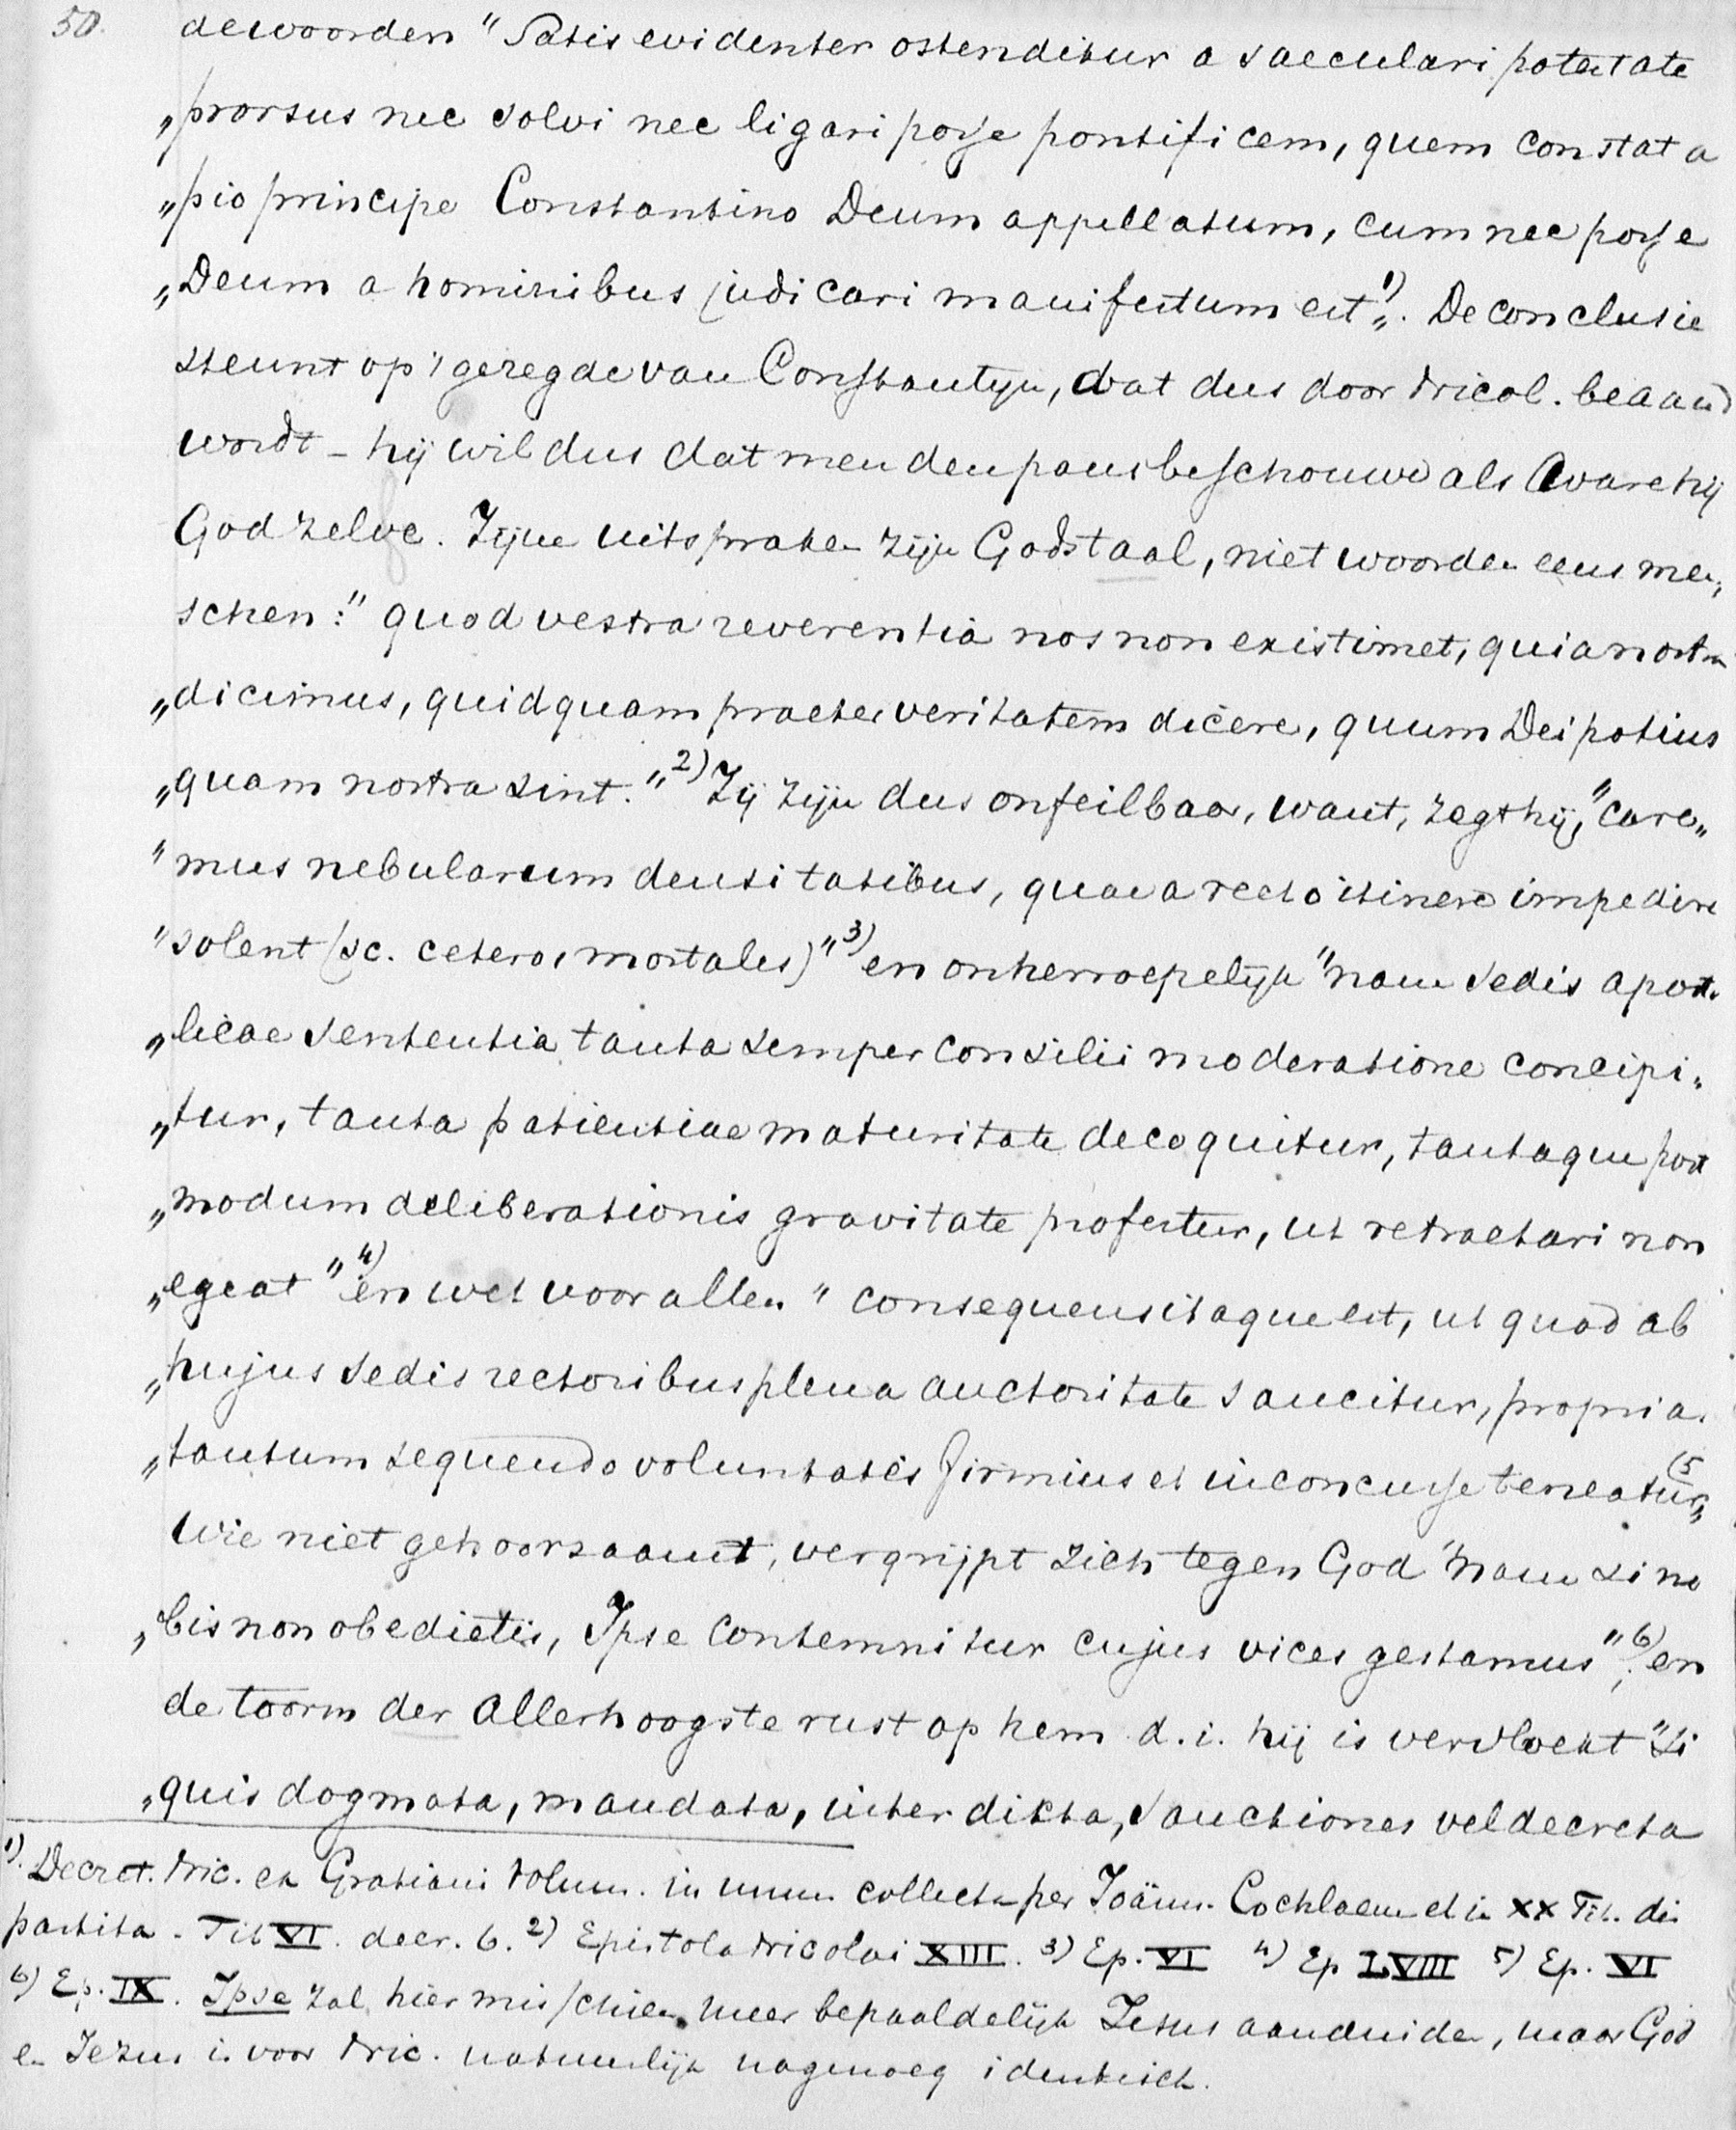 50.
de woorden "Satis evidenter ostenditur a saeculari potestate
„prorsus nec solvi nec ligari posse pontificem, quem constat a
„pio principe Constantino Deum appellatum, cum nec posse
„Deum a hominibus judicari manifestum est„ 1). De conclusie
steunt op 't gezegde van Constantijn, dat dus door Nicol. beaamd
wordt – hij wil dus dat men den paus beschouwe als ware hij
God zelve. Zijne uitspraken zijn Godstaal, niet woorden eens men„
schen: " quod vestra reverentia nos non existimet, quia nostra
„dicimus, quidquam praeter veritatem dicere, quum Dei potius
„quam nostra sint." 2) Zij zijn dus onfeilbaar, want, zegt hij, "care„
"mus nebularum densitatibus, quae a recto itinere impedire
"solent (sc. ceteros mortales)" 3) en onherroepelijk "nam sedis aposto
„licae sententia tanta semper consilii moderatione concipi„
„tur, tanta patientiae maturitate decoquitur, tantaque post
„modum deliberationis gravitate profertur, ut retractari non
„egeat" 4) en wet voor allen " consequens itaque est, ut quod ab
„hujus sedis rectoribus plena auctoritate sancitur, propria.
„tantum sequendo voluntatis firmius et inconcusse teneatur„ (5
Wie niet gehoorzaamt, vergrijpt zich tegen God "nam si no
„bis non obedietis, Ipse contemnitur cujus vices gestamus" 6); en
de toorn der Allerhoogste rust op hem d. i. hij is vervloekt "Si
„quis dogmata, mandata, interdikta, sanctiones vel decreta
1). Decret. Nic. ex Gratiani volum. in unum collecta per Joänn. Cochlaeum et in XX Tit. dis
partita. Tit VI. decr. 6. 2) Epistola Nicolai XIII. 3) Ep. VI 4) Ep LVIII 5) Ep. VI
6) Ep. IX. Ipse zal hier misschien meer bepaaldelijk Jesus aanduiden, maar God
en Jezus is voor Nic. natuurlijk nagenoeg identisch.